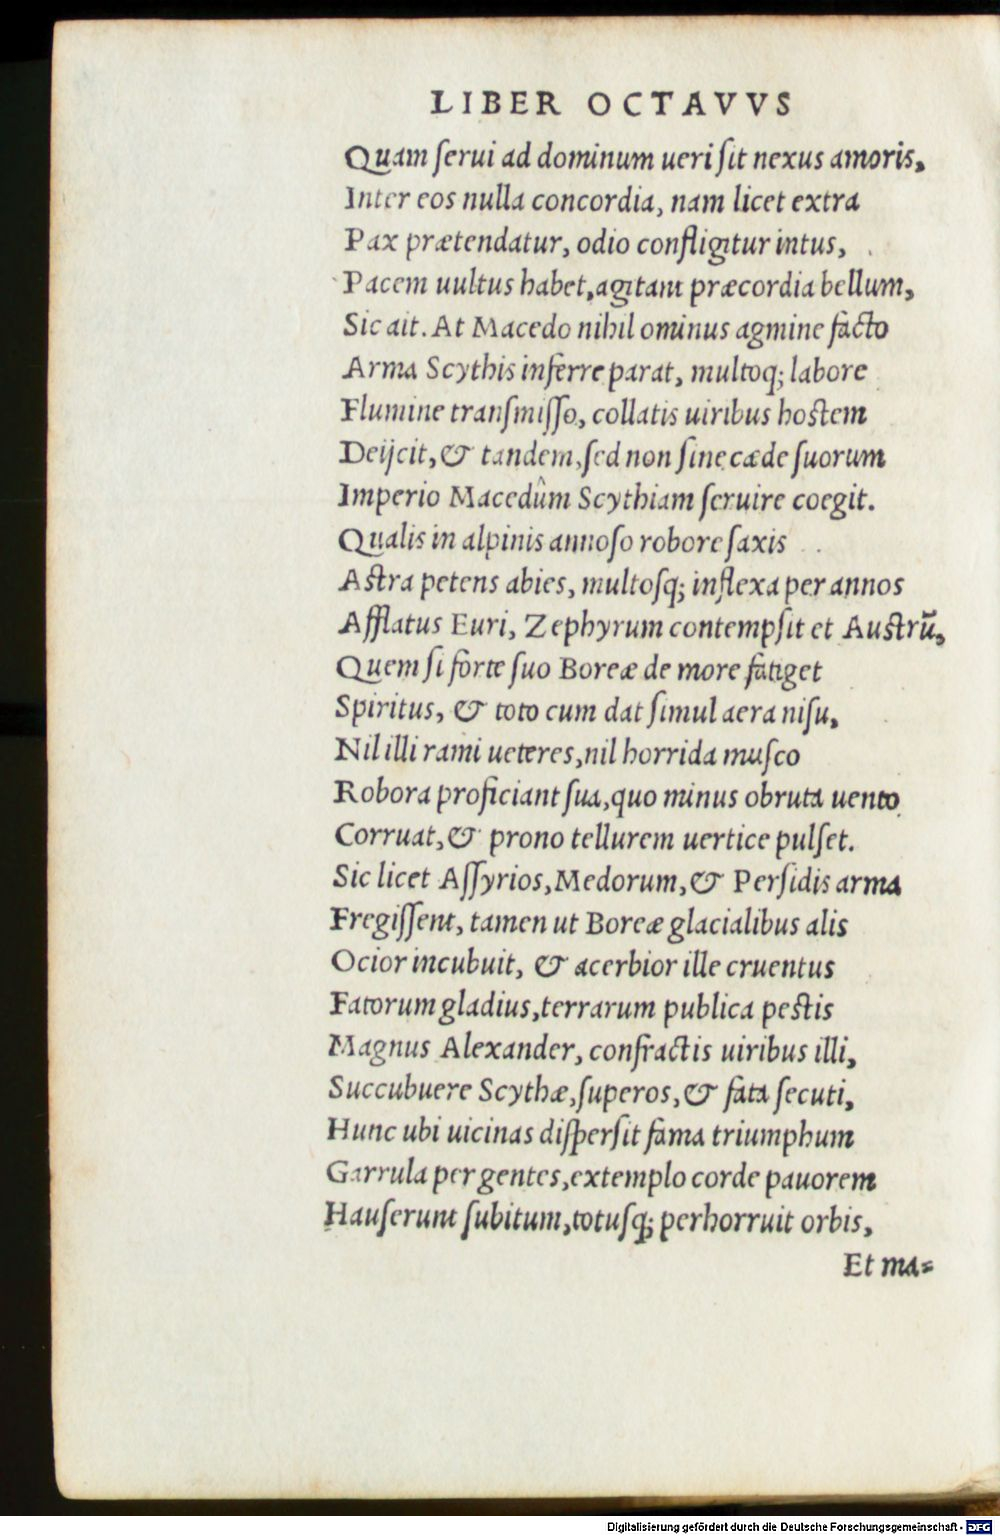 LIBER OCTAVVS
Quam ſerui ad dominum ueri ſit nexus amoris,
Inter eos nulla concordia, nam licet extra
Pax prætendatur, odio confligitur intus,
Pacem uultus habet, agitant præcordia bellum,
Sic ait. At Macedo nihil ominus agmine facto
Arma Scythis inferre parat, multoq; labore
Flumine tranſmiſſo, collatis uiribus hoſtem
Deijcit, & tandem, ſed non ſine cæde ſuorum
Imperio Macedûm Scythiam ſeruire coegit.
Qualis in alpinis annoſo robore ſaxis
Aſtra petens abies, multoſq; inflexa per annos
Afflatus Euri, Zephyrum contempſit et Auſtrū,
Quem ſi forte ſuo Boreæ de more fatiget
Spiritus, & toto cum dat ſimul aera niſu,
Nil illi rami ueteres, nil horrida muſco
Robora proficiant ſua, quo minus obruta uento
Corruat, & prono tellurem uertice pulſet.
Sic licet Aſſyrios, Medorum, & Perſidis arma
Fregiſſent, tamen ut Boreæ glacialibus alis
Ocior incubuit, & acerbior ille cruentus
Fatorum gladius, terrarum publica peſtis
Magnus Alexander, confractis uiribus illi,
Succubuere Scythæ, ſuperos, & fata ſecuti,
Hunc ubi uicinas diſperſit fama triumphum
Garrula per gentes, extemplo corde pauorem
Hauſerunt ſubitum, totuſq; perhorruit orbis,
Et ma-
Digitalisierung gefördert durch die Deutsche Forschungsgemeinschaft - DFG